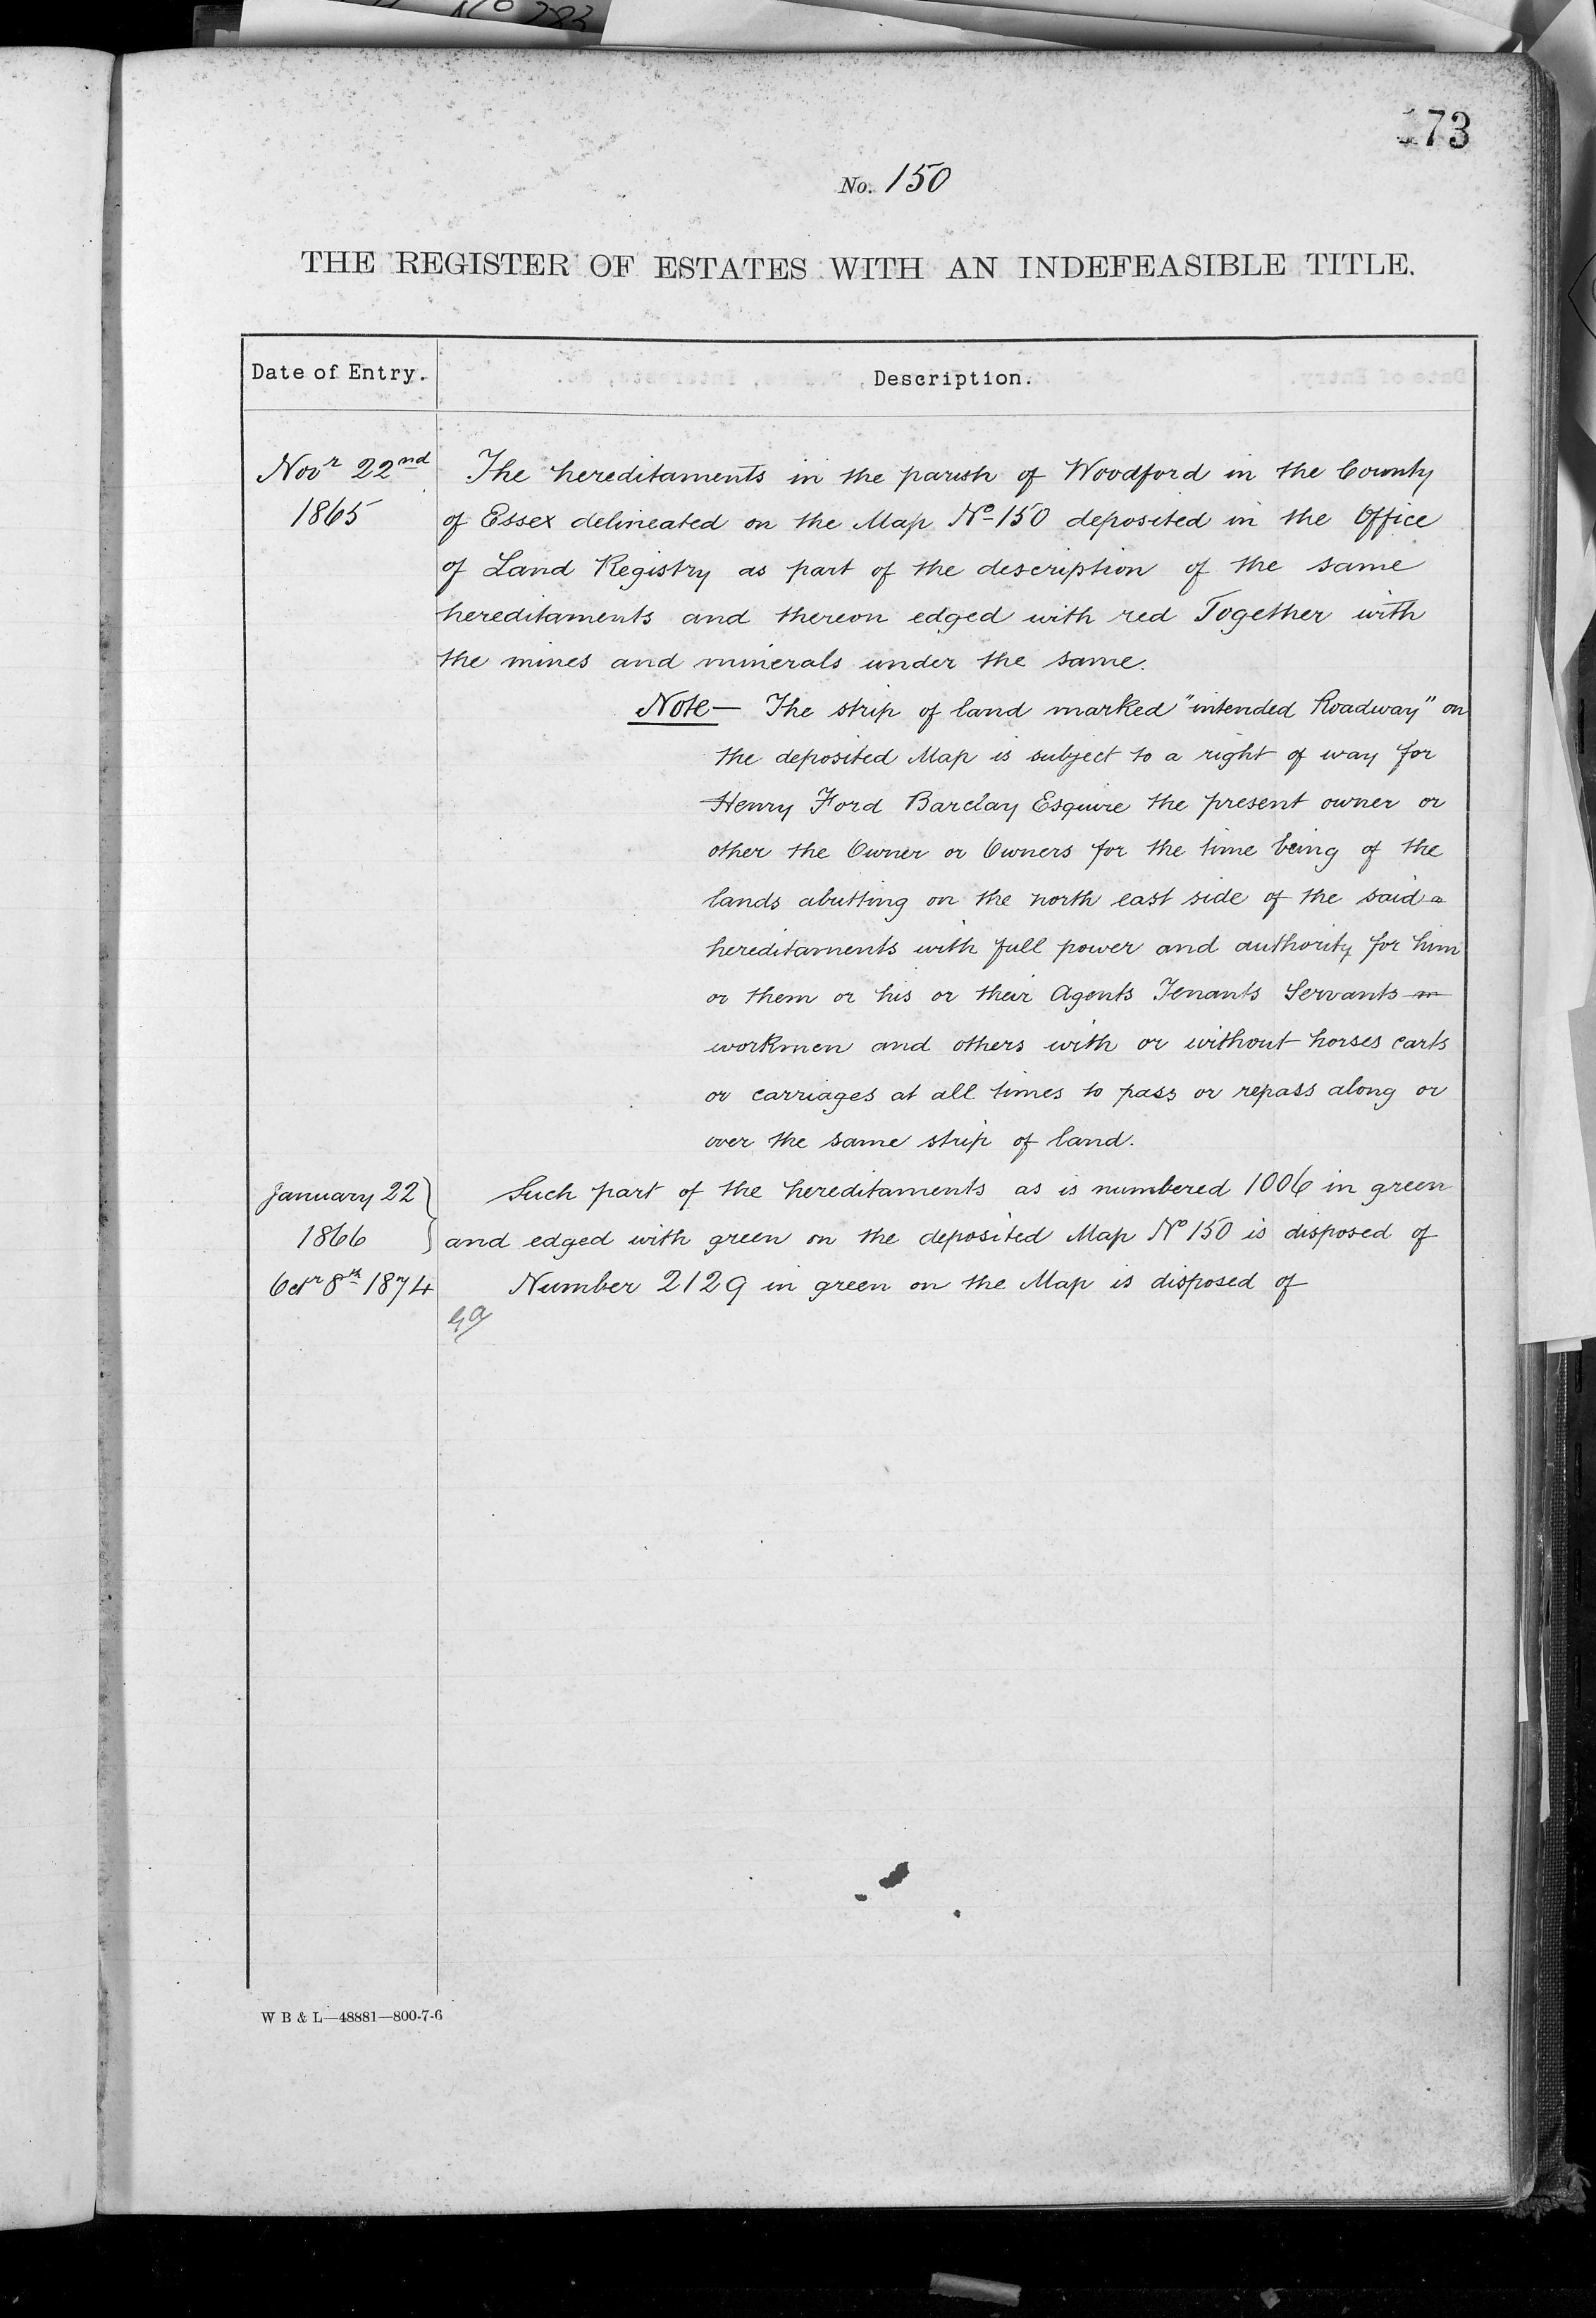 No 283
173
No. 150
THE REGISTER OF ESTATES WITH AN INDEFEASIBLE TITLE.
Date of Entry. Description.
Novr 22nd The hereditaments in the parish of Woodford in the County
1865 of Essex delineated on the Map No 150 deposited in the Office
of Land Registry as part of the description of the same
hereditaments and thereon edged with red Together with
the mines and minerals under the same.
Note— The strip of land marked "intended Roadway" on
the deposited Map is subject to a right of way for
Henry Ford Barclay Esquire the present owner or
other the Owner or Owners for the time being of the
lands abutting on the north east side of the said
hereditaments with full power and authority for him
or them or his or their Agents Tenants Servants
workmen and others with or without horses carts
or carriages at all times to pass or repass along or
over the same strip of land.
January 22 Such part of the hereditaments as is numbered 1006 in green
1866 and edged with green on the deposited Map No 150 is disposed of
Octr 8th 1874 Number 2129 in green on the Map is disposed of
W B & L—48881—800-7-6